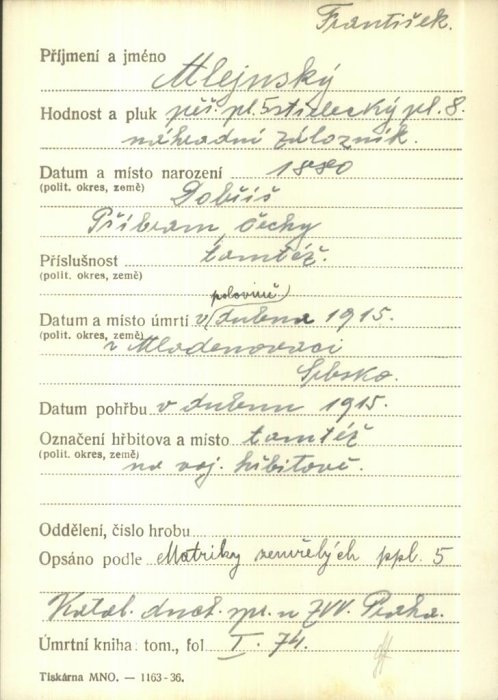 František.
Příjmení a jméno
Mlejnský
Hodnost a pluk pěš. pl. 5 střelecký pl. 8.
náhradní záložník.
Datum a místo narození 1880
(polit. okres, země) Dobříš
Příbram, Čechy
Příslušnost tamtéž.
(polit. okres, země)
polovině
Datum a místo úmrtí v dubna 1915.
(polit. okres, země) v Mladenovaci
Srbsko.
Datum pohřbu v dubnu 1915.
Označení hřbitova a místo tamtéž
(polit. okres, země) na voj. hřbitově.
Oddělení, číslo hrobu
Opsáno podle Matriky zemřelých ppl. 5
Katol. duch. spr. u ZVV. Praha.
Úmrtní kniha: tom., fol I. 74.
Tiskárna MNO. — 1163-36.